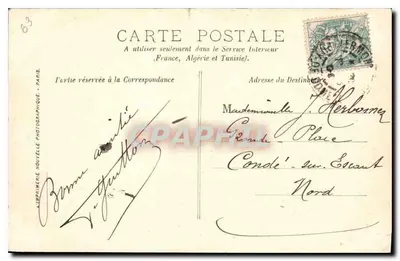 63
CARTE POSTALE
A utiliser seulement dans le Service Intérieur
(France, Algérie et Tunisie).
Partie réservée à la Correspondance
Adresse du Destinataire
IMPRIMERIE NOUVELLE PHOTOGRAPHIQUE - PARIS
Bonne amitié
Mademoiselle J. Herbomez
Grande Place
Condé sur Escaut
Nord